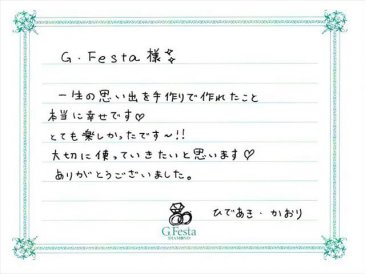 G.Festa 様
一生の思い出を手作りで作れたこと
本当に幸せです♡
とても楽しかったです〜!!
大切に使っていきたいと思います♡
ありがとうございました。
ひであき・かおり
G.Festa
DIAMOND